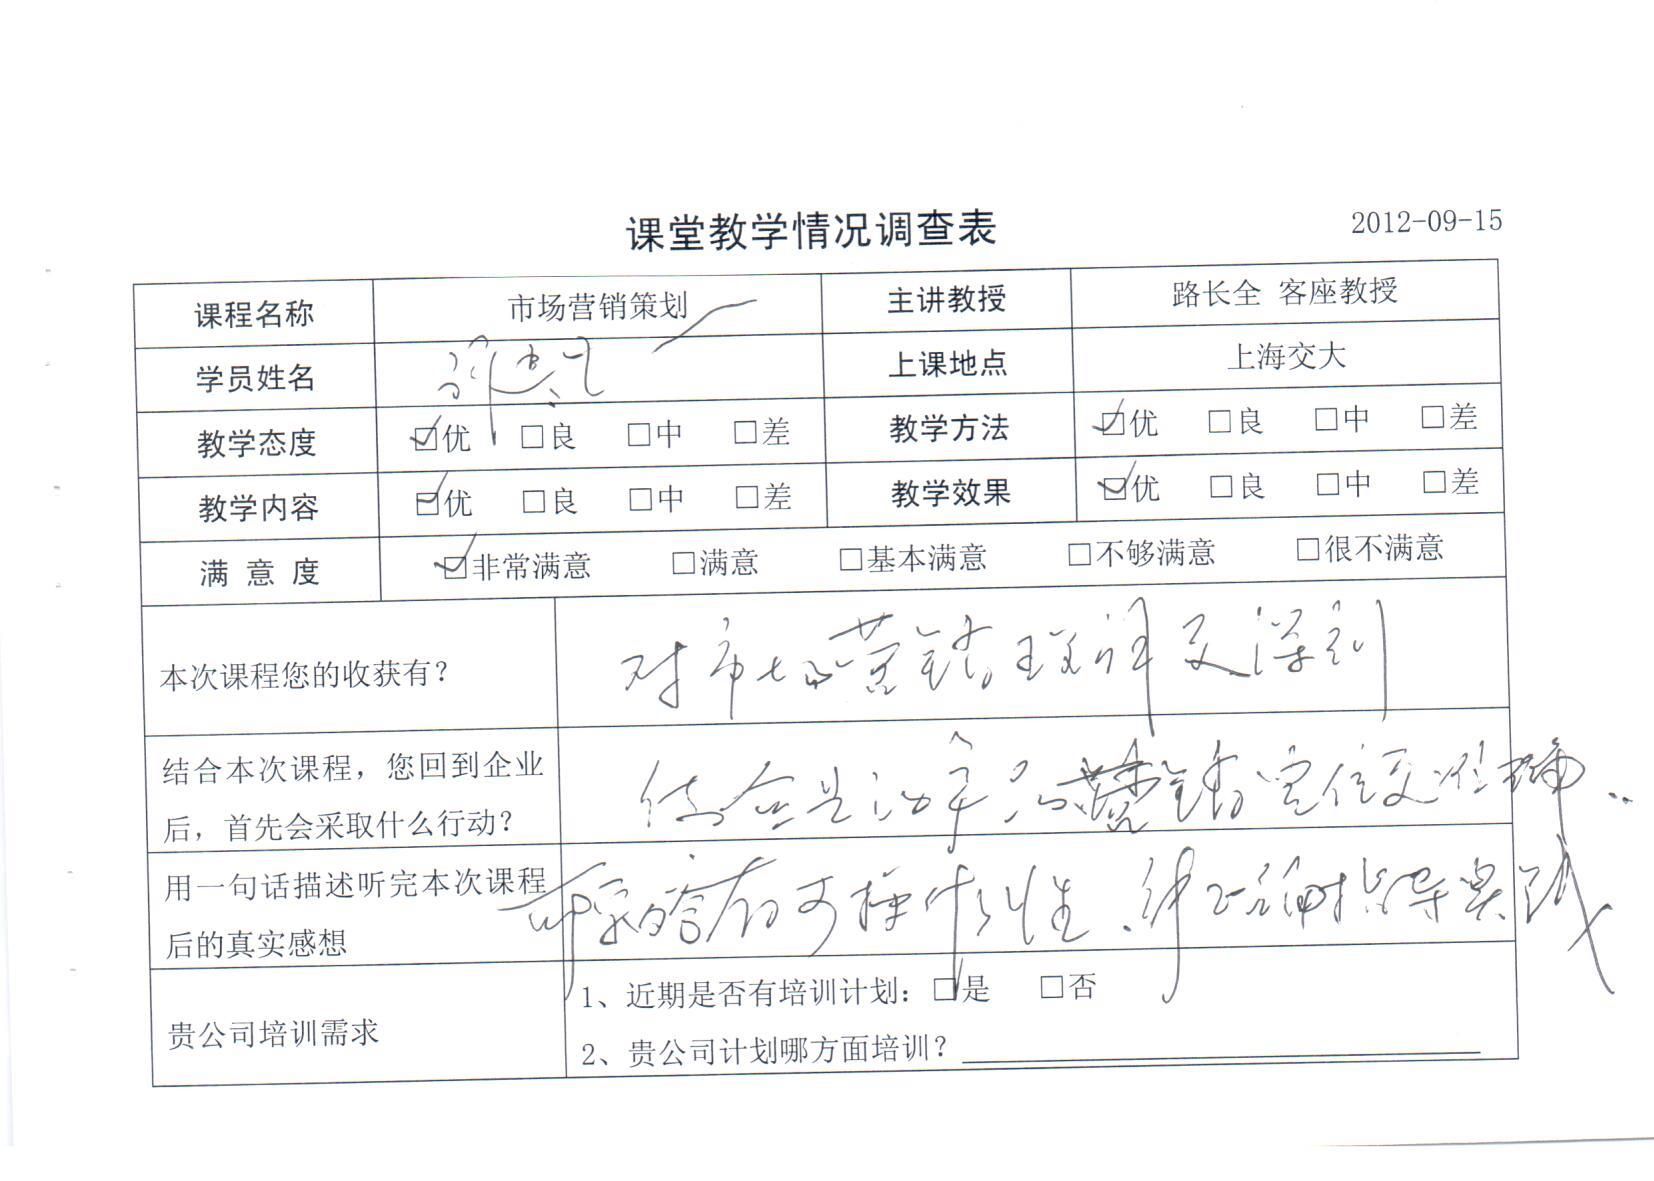 课堂教学情况调查表 2012-09-15
课程名称 市场营销策划 主讲教授 路长全 客座教授
学员姓名 上课地点 上海交大
教学态度 ☑优 □良 □中 □差 教学方法 ☑优 □良 □中 □差
教学内容 ☑优 □良 □中 □差 教学效果 ☑优 □良 □中 □差
满 意 度 ☑非常满意 □满意 □基本满意 □不够满意 □很不满意
本次课程您的收获有? 对市场营销理解更深刻
结合本次课程,您回到企业
后,首先会采取什么行动? 结合 产品 营销定位更准确..
用一句话描述听完本次课程
后的真实感想 可操作性 理论指导实践
贵公司培训需求
1、近期是否有培训计划: □是 □否
2、贵公司计划哪方面培训?